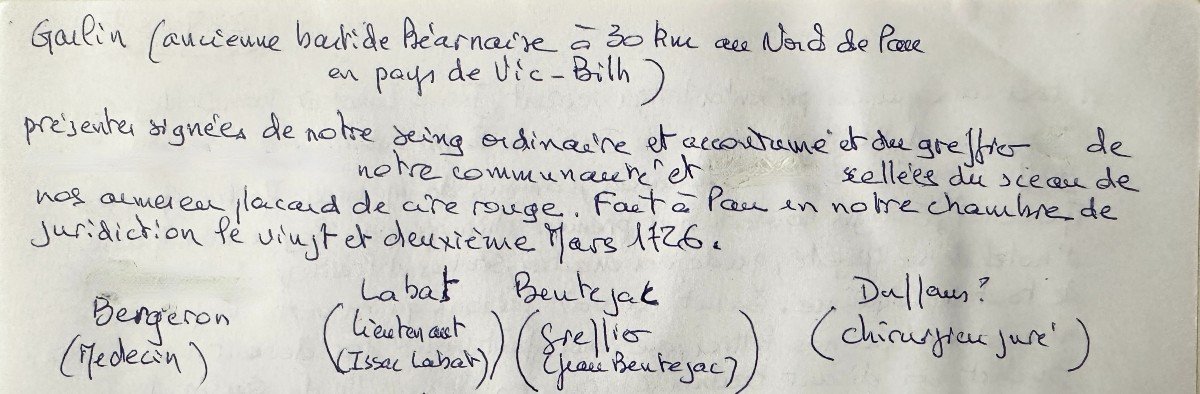 Garlin (ancienne bastide Béarnaise à 30 km au Nord de Pau
en pays de Vic-Bilh)
présentes signées de notre seing ordinaire et accoutumé et du greffier de
notre communauté et scellées du sceau de
nos armes en placard de cire rouge. Fait à Pau en notre chambre de
juridiction le vingt et deuxième Mars 1726.
Labat Beutejac Duflaus?
Bergeron (lieutenant (greffier (chirurgien juré)
(Medecin) (Issac Labat)) (Jean Beutejac))